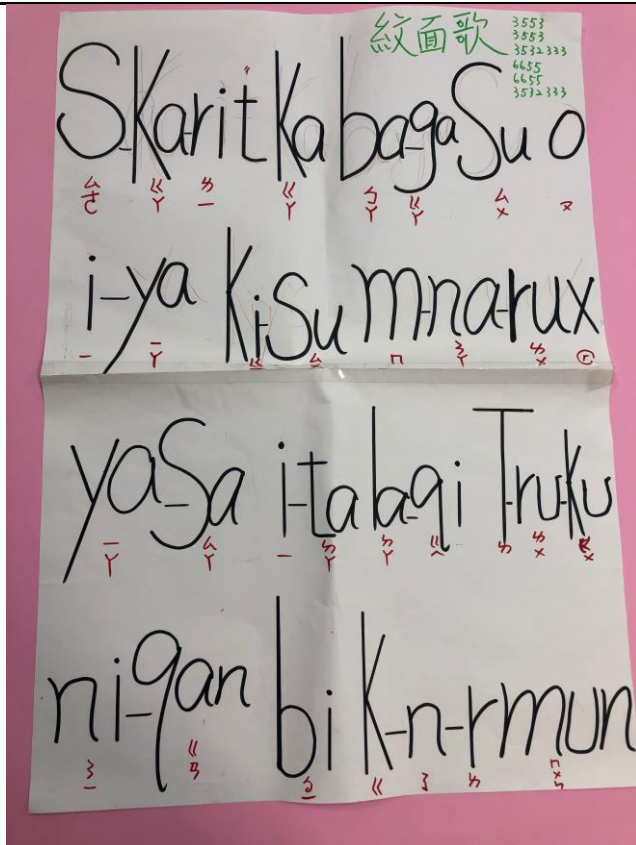 紋面歌
3553
3553
3532333
6655
6655
3532333
S-Ka-rit Ka ba-ga Su o
ㄙㄜ ㄍㄚ ㄌㄧ ㄍㄚ ㄅㄚ ㄍㄚ ㄙㄨ ㄡ
i-ya Ki-Su m-na-rux
ㄧ ㄧㄚ ㄍ ㄙ ㄇ ㄋㄚ ㄌㄨ
ya-Sa i-ta la-qi T-ru-ku
ㄧㄚ ㄙㄚ ㄧ ㄉㄚ ㄌㄚ ㄍㄟ ㄉ ㄌㄨ ㄍㄨ
ni-qan bi K-n-rmun
ㄋㄧ ㄍㄢ ㄅㄧ ㄍ ㄋ ㄌ ㄇㄨㄣ